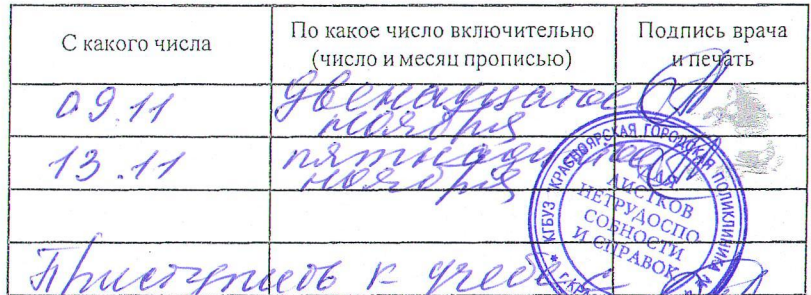 С какого числа
По какое число включительно
(число и месяц прописью)
Подпись врача
и печать
09.11
двенадцатое
ноября
13.11
пятнадцатое
ноября
КГБУЗ "КРАСНОЯРСКАЯ ГОРОДСКАЯ ПОЛИКЛИНИКА №
ДЛЯ
ЛИСТКОВ
НЕТРУДОСПО
СОБНОСТИ
И СПРАВОК
Приступить к учебе с